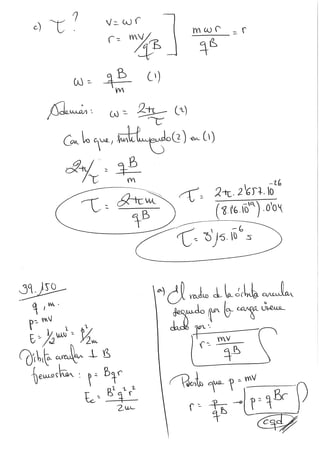 c) τ?
v = ωr
r = mv/qB
mωr/qB = r
ω = qB/m (1)
Además: ω = 2π/τ (2)
Con lo que, sustituyendo (2) en (1)
2π/τ = qB/m
τ = 2πm/qB
τ = 2π · 2'657·10^-26 / (8'16·10^-19)·0'04
τ = 5'15·10^-6 s
39./150
q, m.
p = mv
E = 1/2 mv² = p²/2m
Órbita circular ⊥ B
Demostrar: p = Bqr
Ec = B²q²r²/2m
a) El radio de la órbita circular
seguido por la carga viene
dado por:
r = mv/qB
Puesto que p = mv
r = p/qB → p = qBr
cqd